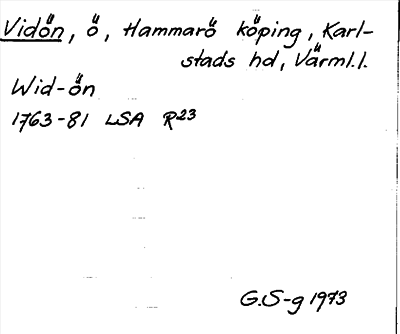 Vidön, ö, Hammarö köping, Karl-
stads hd, Värml.l.
Wid-ön
1763-81 LSA R23
G.S-g 1973